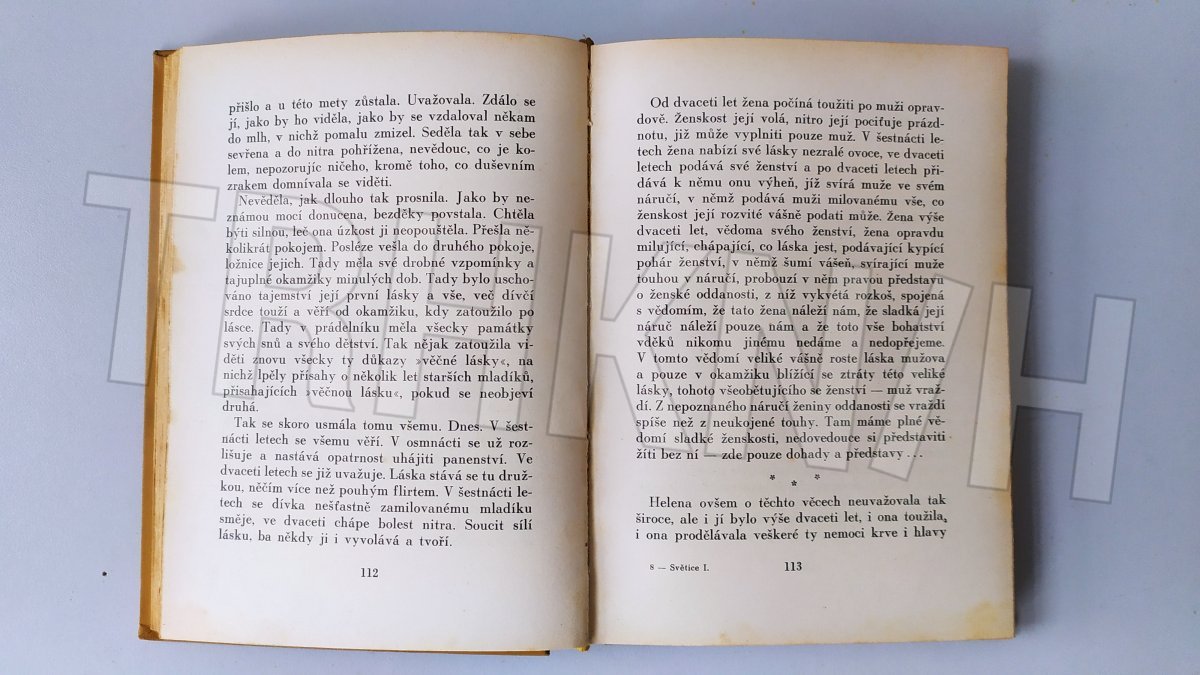 přišlo a u této mety zůstala. Uvažovala. Zdálo se
jí, jako by ho viděla, jako by se vzdaloval někam
do mlh, v nichž pomalu zmizel. Seděla tak v sebe
sevřena a do nitra pohřížena, nevědouc, co je ko-
lem, nepozorujíc ničeho, kromě toho, co duševním
zrakem domnívala se viděti.
Nevěděla, jak dlouho tak prosnila. Jako by ne-
známou mocí donucena, bezděky povstala. Chtěla
býti silnou, leč ona úzkost ji neopouštěla. Přešla ně-
kolikrát pokojem. Posléze vešla do druhého pokoje,
ložnice jejich. Tady měla své drobné vzpomínky a
tajuplné okamžiky minulých dob. Tady bylo uscho-
váno tajemství její první lásky a vše, več dívčí
srdce touží a věří od okamžiku, kdy zatoužilo po
lásce. Tady v prádelníku měla všecky památky
svých snů a svého dětství. Tak nějak zatoužila vi-
děti znovu všecky ty důkazy »věčné lásky«, na
nichž lpěly přísahy o několik let starších mladíků,
přisahajících »věčnou lásku«, pokud se neobjeví
druhá.
Tak se skoro usmála tomu všemu. Dnes. V šest-
nácti letech se všemu věří. V osmnácti se už roz-
lišuje a nastává opatrnost uhájiti panenství. Ve
dvaceti letech se již uvažuje. Láska stává se tu druž-
kou, něčím více než pouhým flirtem. V šestnácti le-
tech se dívka nešťastně zamilovanému mladíku
směje, ve dvaceti chápe bolest nitra. Soucit sílí
lásku, ba někdy ji i vyvolává a tvoří.
112
Od dvaceti let žena počíná toužiti po muži oprav-
dově. Ženskost její volá, nitro její pociťuje prázd-
notu, již může vyplniti pouze muž. V šestnácti le-
tech žena nabízí své lásky nezralé ovoce, ve dvaceti
letech podává své ženství a po dvaceti letech při-
dává k němu onu výheň, jíž svírá muže ve svém
náručí, v němž podává muži milovanému vše, co
ženskost její rozvité vášně podati může. Žena výše
dvaceti let, vědoma svého ženství, žena opravdu
milující, chápající, co láska jest, podávající kypící
pohár ženství, v němž šumí vášeň, svírající muže
touhou v náručí, probouzí v něm pravou představu
o ženské oddanosti, z níž vykvétá rozkoš, spojená
s vědomím, že tato žena náleží nám, že sladká její
náruč náleží pouze nám a že toto vše bohatství
vděků nikomu jinému nedáme a nedopřejeme.
V tomto vědomí veliké vášně roste láska mužova
a pouze v okamžiku blížící se ztráty této veliké
lásky, tohoto všeobětujícího se ženství — muž vraž-
dí. Z nepoznaného náručí ženiny oddanosti se vraždí
spíše než z neukojené touhy. Tam máme plné vě-
domí sladké ženskosti, nedovedouce si představiti
žíti bez ní — zde pouze dohady a představy...
* * *
Helena ovšem o těchto věcech neuvažovala tak
široce, ale i jí bylo výše dvaceti let, i ona toužila,
i ona prodělávala veškeré ty nemoci krve i hlavy
8 — Světice I.
113
TRHKNIH